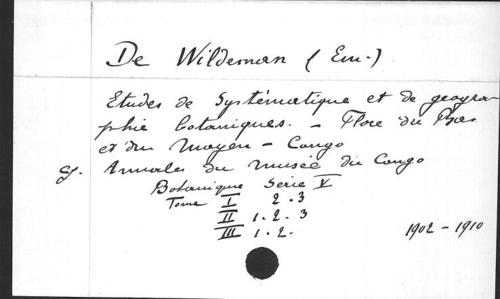 De Wildeman (Em.)
Etudes de Systématique et de geogra-
phie botaniques. - Flore du Bas
et du Moyen - Congo
Annales du musée du Congo
Botanique Serie V
Tome I 2.3
II 1.2.3
III 1.2.
1902-1910